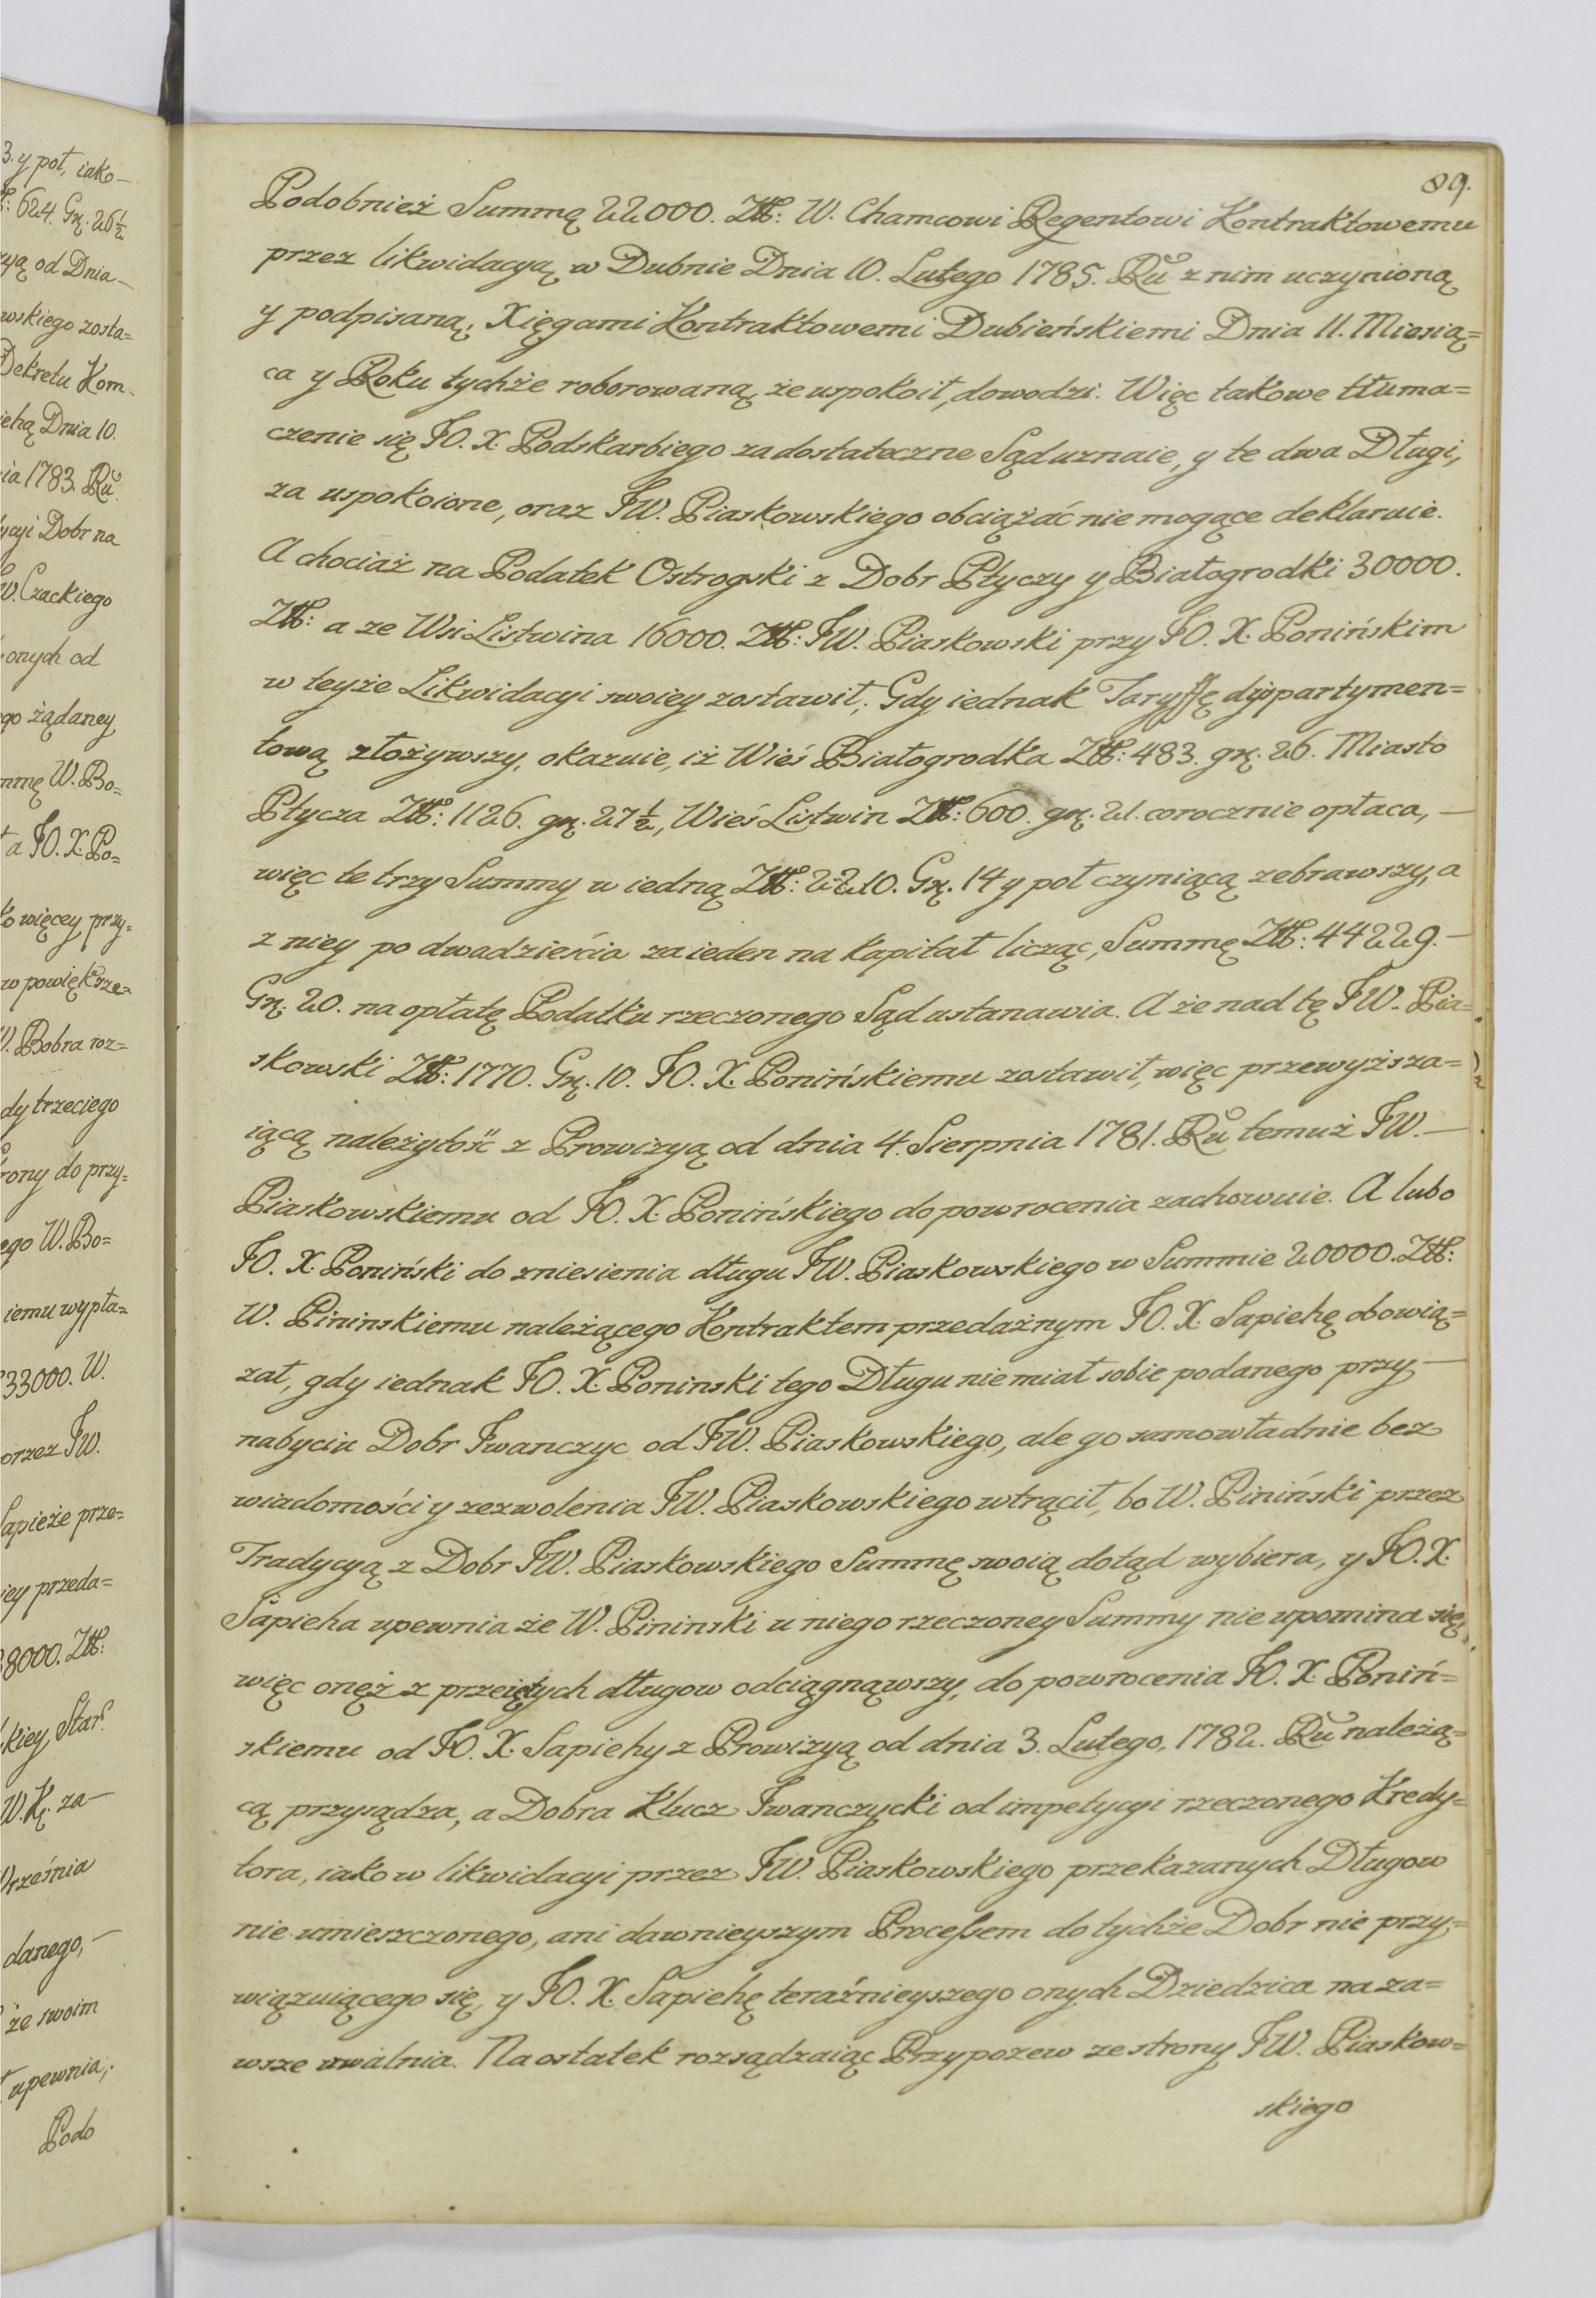 3. y poł, iako—
624. Gr. 26½
od Dnia—
wskiego zosta=
Dekretu Kom.
Dnia 10.
1783. Ru
Dobr na
W. Czackiego
onych od
żądaney
W. Bo=
a JO. X. Po=
więcey przy=
w powiększe=
W. Bobra roz=
dy trzeciego
do przy=
W. Bo=
iemu wypła=
33000. W.
przez JW.
Sapieże prze=
iey przeda=
8000. Złł:
kiey Star.
za—
Września
danego,—
że swoim
upewnia;
Podo
89.
Podobnież Summą 22000. Złł: W. Chamcowi Regentowi Kontraktowemu
przez likwidacyą w Dubnie Dnia 10. Lutego 1785. Ru z nim uczynioną
y podpisaną, Xięgami Kontraktowemi Dubieńskiemi Dnia 11. Miesią=
ca y Roku tychże roborowaną, że uspokoił, dowodzi. Więc takowe tłuma=
czenie się JO. X. Podskarbiego za dostateczne Sąd uznaie, y te dwa Długi,
za uspokoione, oraz JW. Piaskowskiego obciążać nie mogące deklaruie.
A chociaż na Podatek Ostrogski z Dobr Ptyczy y Białogrodki 30000.
Złł: a ze Wsi Listwina 16000. Złł: JW. Piaskowski przy JO. X. Ponińskim
w teyże Likwidacyi swoiey zostawił; Gdy iednak Taryffę dyspartymen=
tową złożywszy, okazuie, iż Wieś Białogrodka Złł: 483. gr. 26. Miasto
Ptycza Złł: 1126. gr. 27½, Wieś Listwin Złł: 600. gr. 21. corocznie opłaca,—
więc te trzy Summy w iedną Złł: 2210. Gr. 14 y poł czyniącą zebrawszy, a
z niey po dwadzieścia za ieden na kapitał licząc, Summę Złł: 44229.—
Gr. 20. na opłatę Podatku rzeczonego Sąd ustanawia. A że nad tę JW. Pia=
skowski Złł: 1770. Gr. 10. JO. X. Ponińskiemu zostawił, więc przewyższa=
iącą należytość z Prowizyą od dnia 4. Sierpnia 1781. Ru temuż JW.—
Piaskowskiemu od JO. X. Ponińskiego do powrocenia zachowuie. A lubo
JO. X. Poniński do zniesienia długu JW. Piaskowskiego w Summie 20000. Złł:
W. Pininskiemu należącego Kontraktem przedażnym JO. X. Sapiehę obowią=
zał, gdy iednak JO. X. Poninski tego Długu nie miał sobie podanego przy—
nabyciu Dobr Iwanczyc od JW. Piaskowskiego, ale go samowładnie bez
wiadomości y zezwolenia JW. Piaskowskiego wtrącił, bo W. Piniński przez
Tradycyą z Dobr JW. Piaskowskiego Summę swoią dotąd wybiera, y JO. X.
Sapieha upewnia że W. Pininski u niego rzeczoney Summy nie upomina się,
więc onęż z przeiętych długow odciągnąwszy, do powrocenia JO. X. Poniń=
skiemu od JO. X. Sapiehy z Prowizyą od dnia 3. Lutego, 1782. Ru należą=
cą przysądza, a Dobra Klucz Iwanczycki od impetycyi rzeczonego Kredy=
tora, iako w likwidacyi przez JW. Piaskowskiego przekazanych Długow
nie umieszczonego, ani dawnieyszym Processem do tychże Dobr nie przy=
wiązuiącego się, y JO. X. Sapiehę teraźnieyszego onych Dziedzica na za=
wsze uwalnia. Na ostatek rozsądzaiąc Przypozew ze strony JW. Piaskow=
skiego